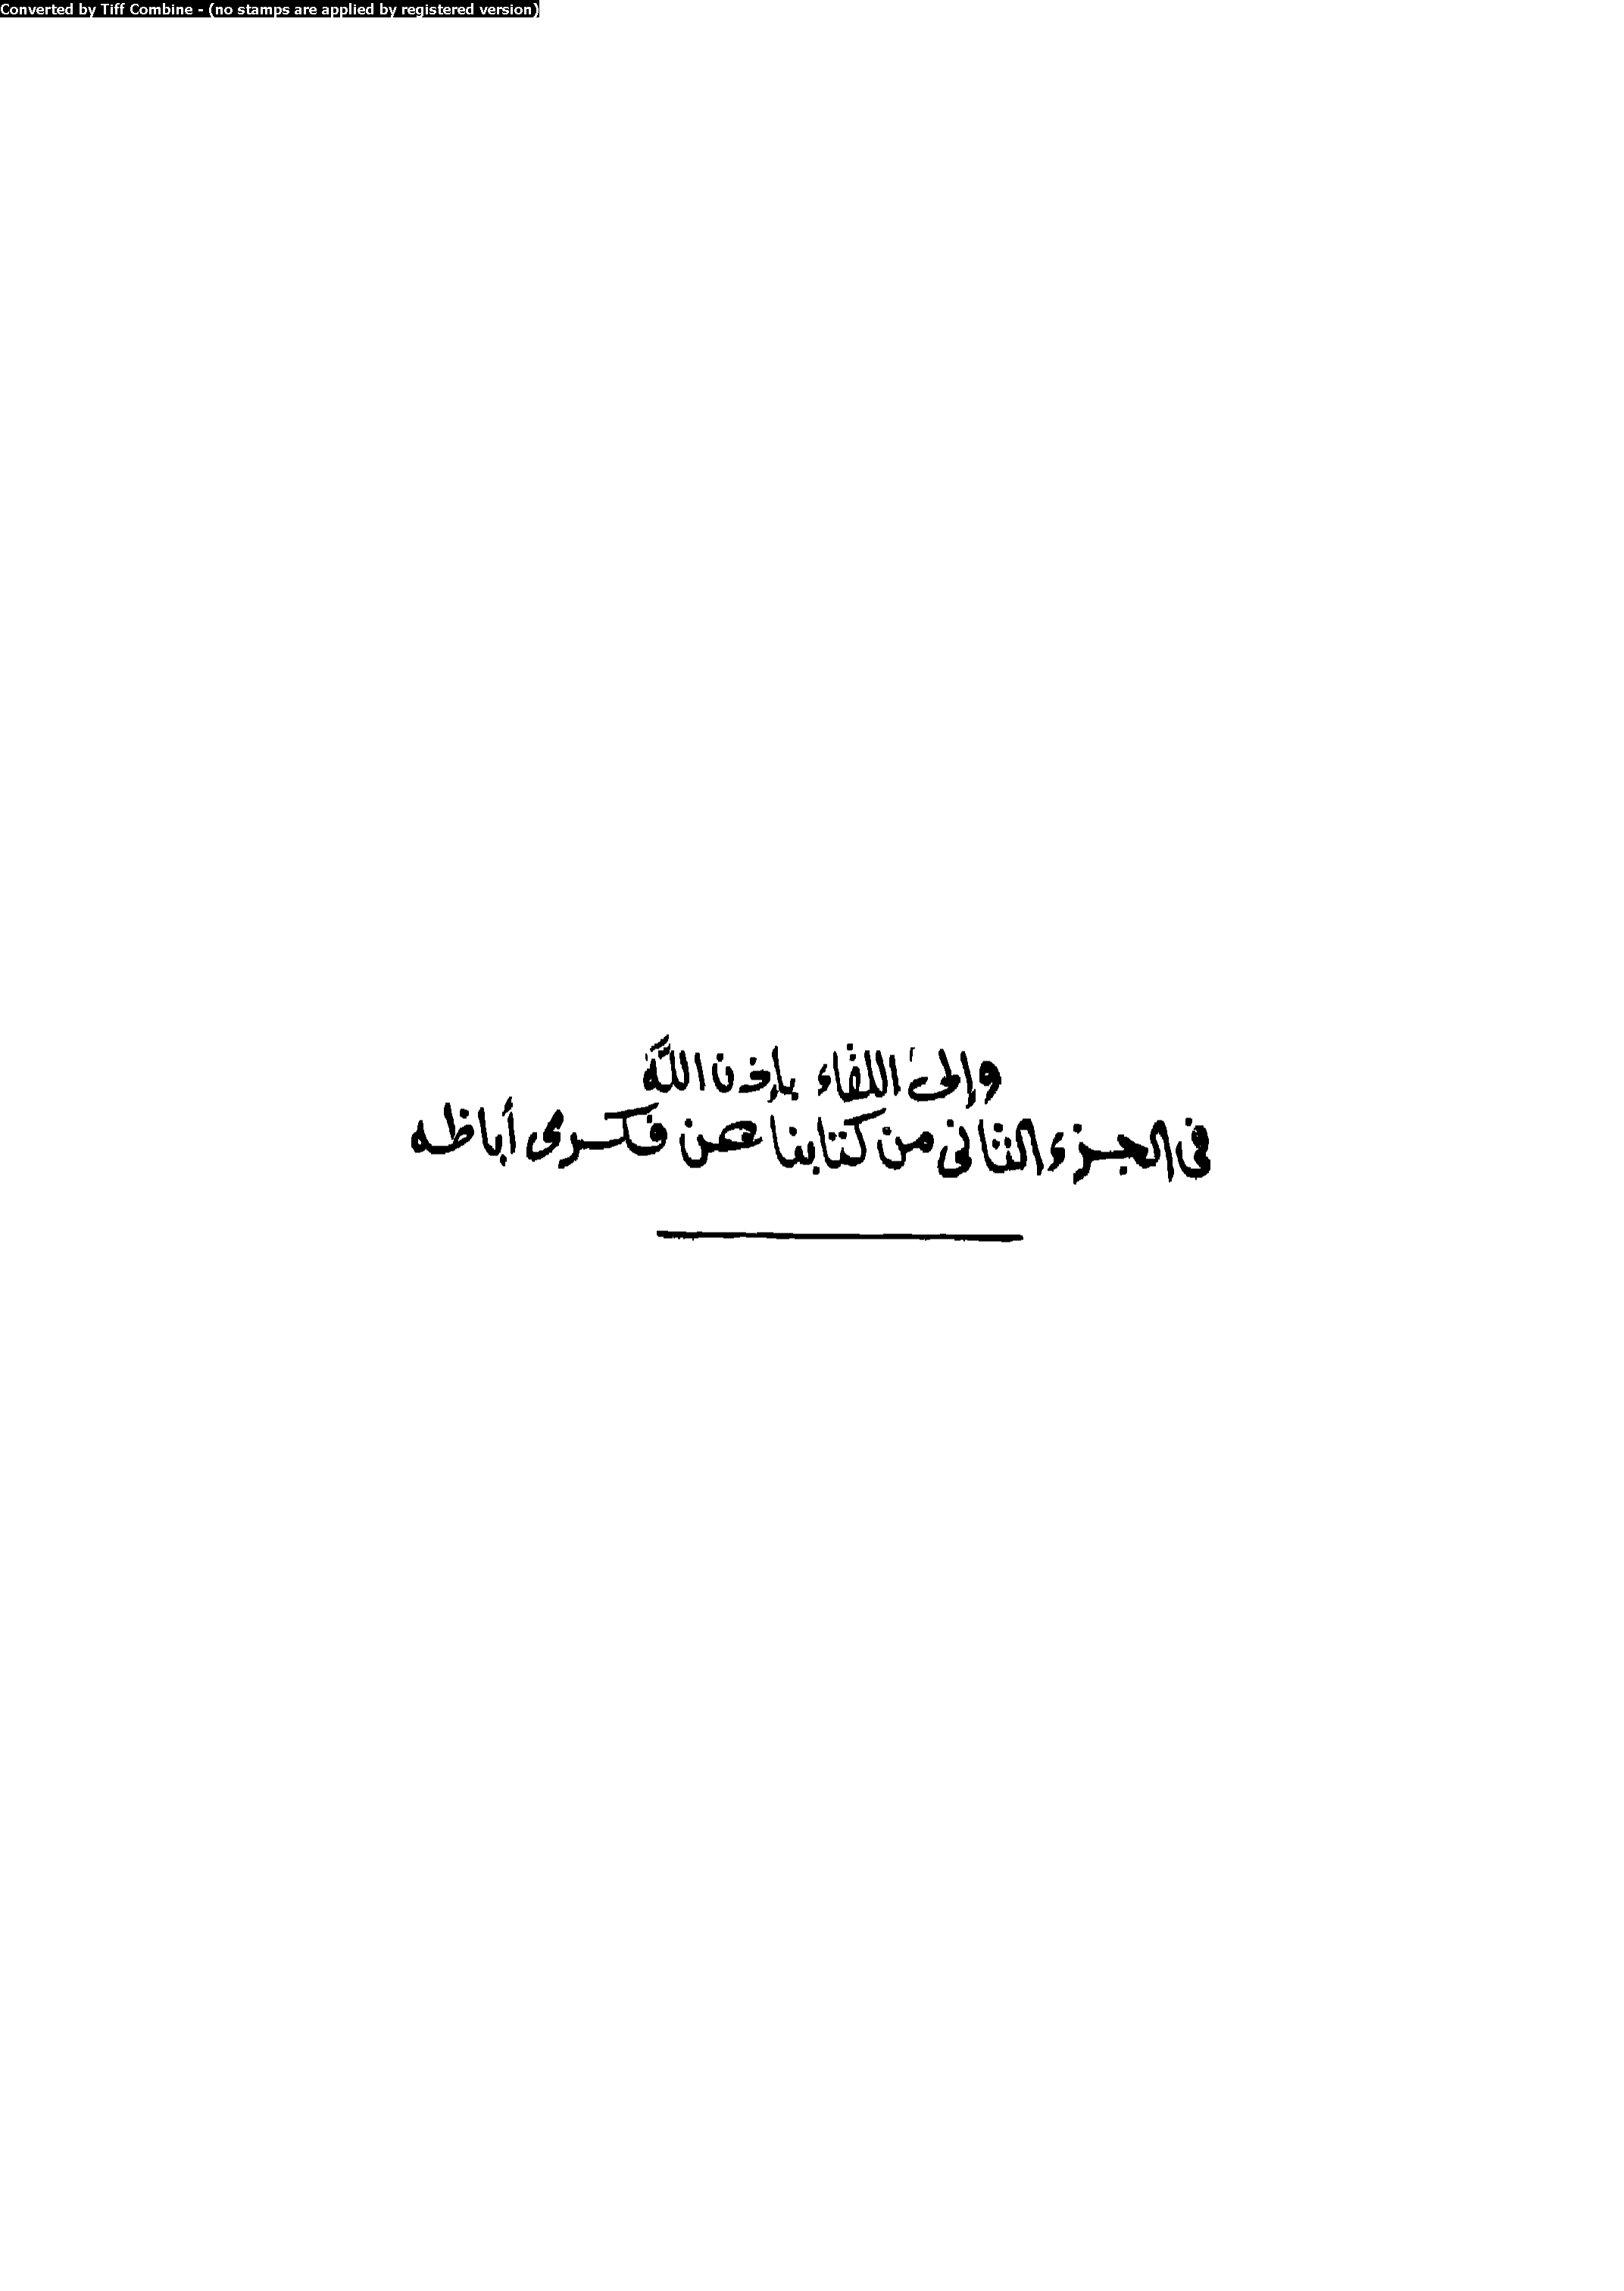 Converted by Tiff Combine - (no stamps are applied by registered version)
وإلى اللقاء بإذن الله
فى الجزء الثانى من كتابنا عن فكرى أباظه